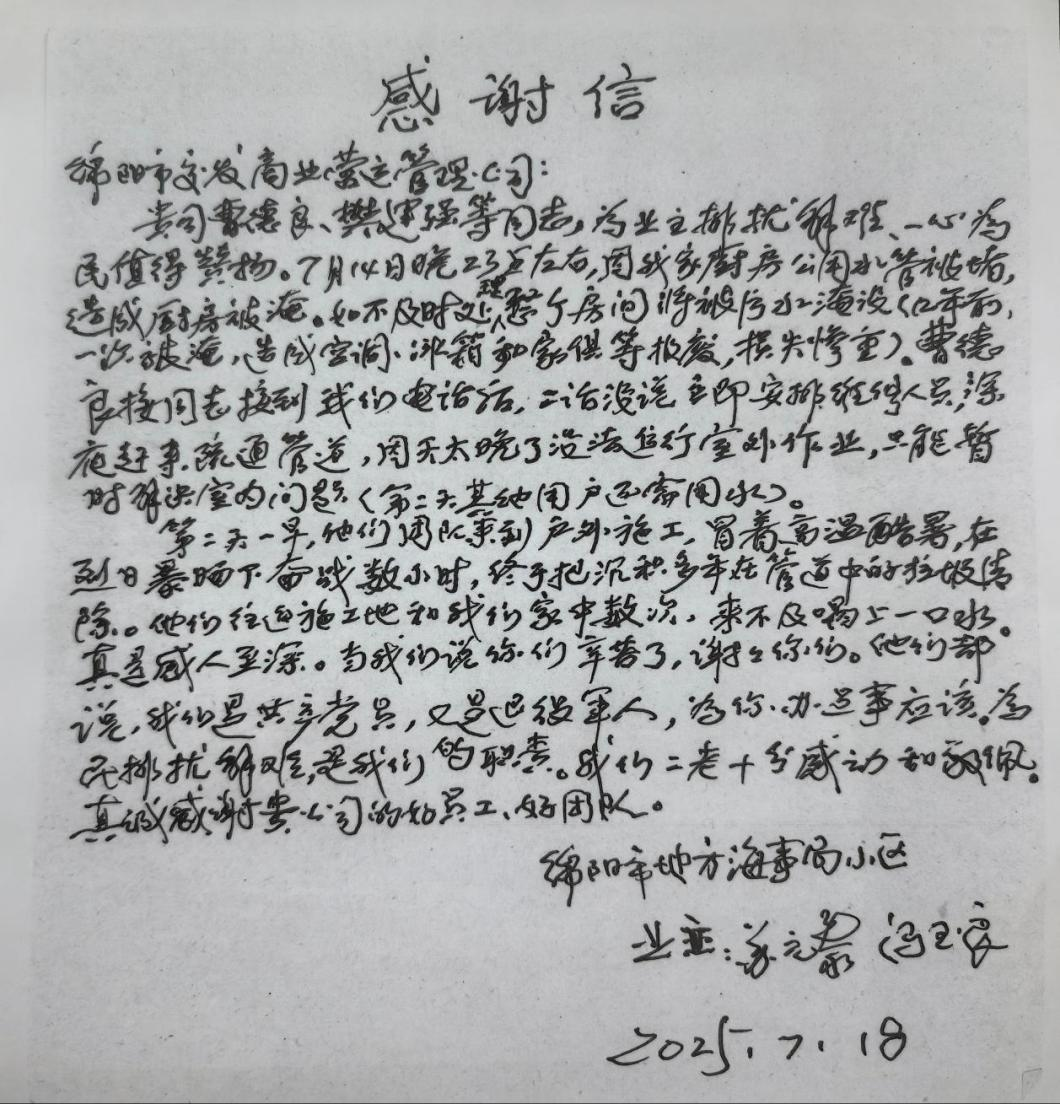 感谢信
绵阳市交发商业营运管理公司:
贵司曹德良、樊运强等同志,为业主排扰解难、一心为
民值得赞扬。7月14日晚23点左右,因我家厨房公用水管被堵,
造成厨房被淹。如不及时处理整个房间将被污水淹没(12年前,
一次被淹,造成空调、冰箱和家俱等报废,损失惨重)。曹德
良接同志接到我们电话后,二话没说立即安排维修人员,深
夜赶来疏通管道,因天太晚了没法进行室外作业,只能暂
时解决室内问题(第二天其他用户还需用水)。
第二天一早,他们团队来到户外施工,冒着高温酷暑,在
烈日暴晒下奋战数小时,终于把沉积多年在管道中的垃圾清
除。他们往返施工地和我们家中数次,来不及喝上一口水。
真是感人至深。当我们说你们辛苦了,谢谢你们。他们都
说,我们是共产党员,又是退役军人,为你办这事应该。为
民排扰解难,是我们的职责。我们二老十分感动和敬佩。
真诚感谢贵公司的好员工、好团队。
绵阳市地方海事局小区
业主:
2025.7.18